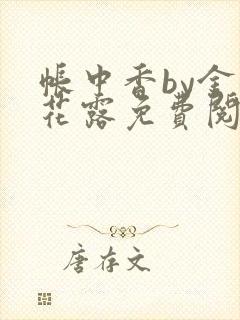 帐中香by金
花露免費閱
唐存文